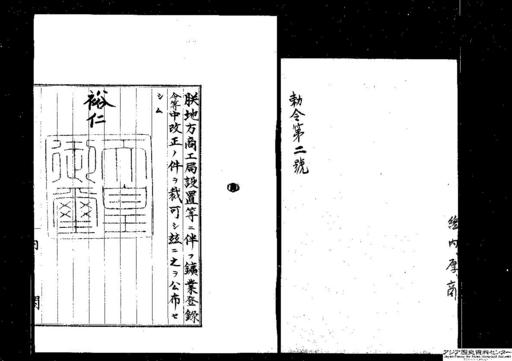 勅令第二號
総内厚商
朕地方商工局設置等ニ伴フ鑛業登録
令等中改正ノ件ヲ裁可シ玆ニ之ヲ公布セ
シム
裕仁
天皇
御璽
内
閣
アジア歴史資料センター